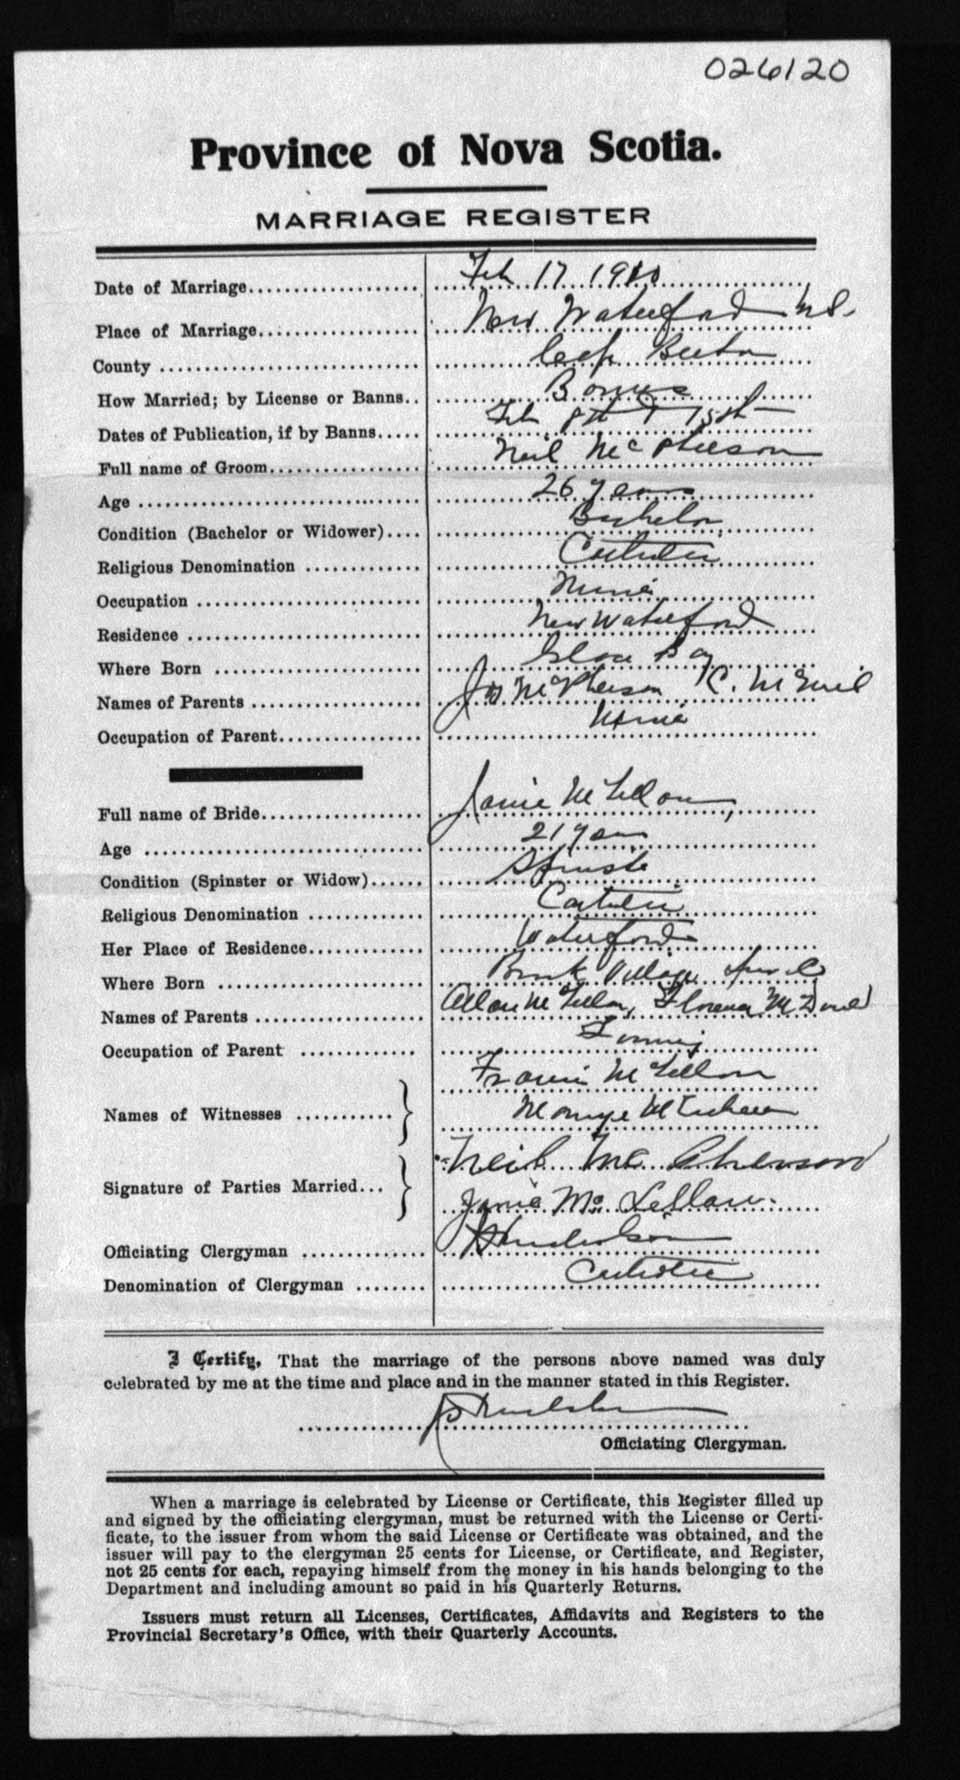 026120
Province of Nova Scotia.
MARRIAGE REGISTER
Date of Marriage Feb 17 1920
Place of Marriage New Waterford N.S.
County Cape Breton
How Married; by License or Banns.. Banns
Dates of Publication, if by Banns Feb 8th & 15th
Full name of Groom Neil McPherson
Age 26 years
Condition (Bachelor or Widower) Bachelor
Religious Denomination Catholic
Occupation Miner
Residence New Waterford
Where Born Glace Bay
Names of Parents McPherson C. McNeil
Occupation of Parent Miner
Full name of Bride Janie McLellan,
Age 21 years
Condition (Spinster or Widow) Spinster
Religious Denomination Catholic
Her Place of Residence Waterford
Where Born Brook Village
Names of Parents Allan McLellan, Florence McDonald
Occupation of Parent
Francis McLellan
Names of Witnesses
Neil McPherson
Signature of Parties Married...
Janie McLellan.
Officiating Clergyman
Denomination of Clergyman Catholic
I Certify, That the marriage of the persons above named was duly
celebrated by me at the time and place and in the manner stated in this Register.
Officiating Clergyman.
When a marriage is celebrated by License or Certificate, this Register filled up
and signed by the officiating clergyman, must be returned with the License or Certi-
ficate, to the issuer from whom the said License or Certificate was obtained, and the
issuer will pay to the clergyman 25 cents for License, or Certificate, and Register,
not 25 cents for each, repaying himself from the money in his hands belonging to the
Department and including amount so paid in his Quarterly Returns.
Issuers must return all Licenses, Certificates, Affidavits and Registers to the
Provincial Secretary's Office, with their Quarterly Accounts.